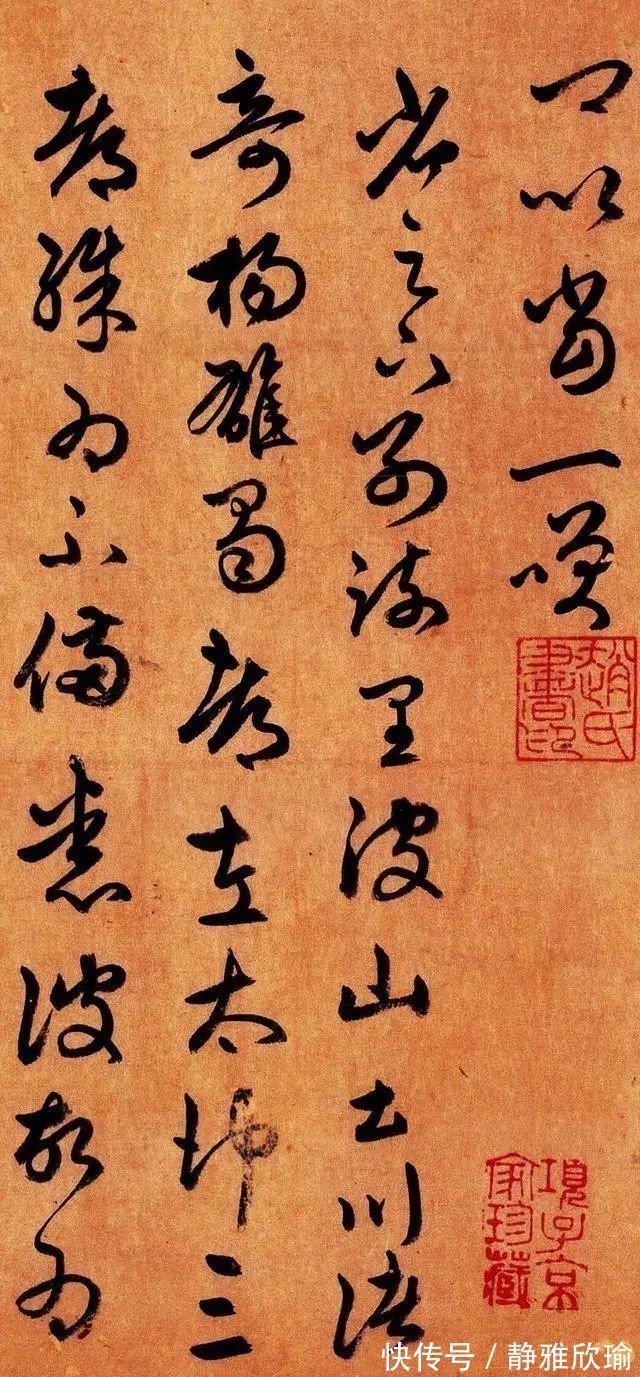 可以當一咲
省足下別疏具彼山土川諸
奇楊雄蜀都左太沖三
都殊為不備悉彼故為
趙氏書印
項子京家珍藏
快传号／静雅欣瑜